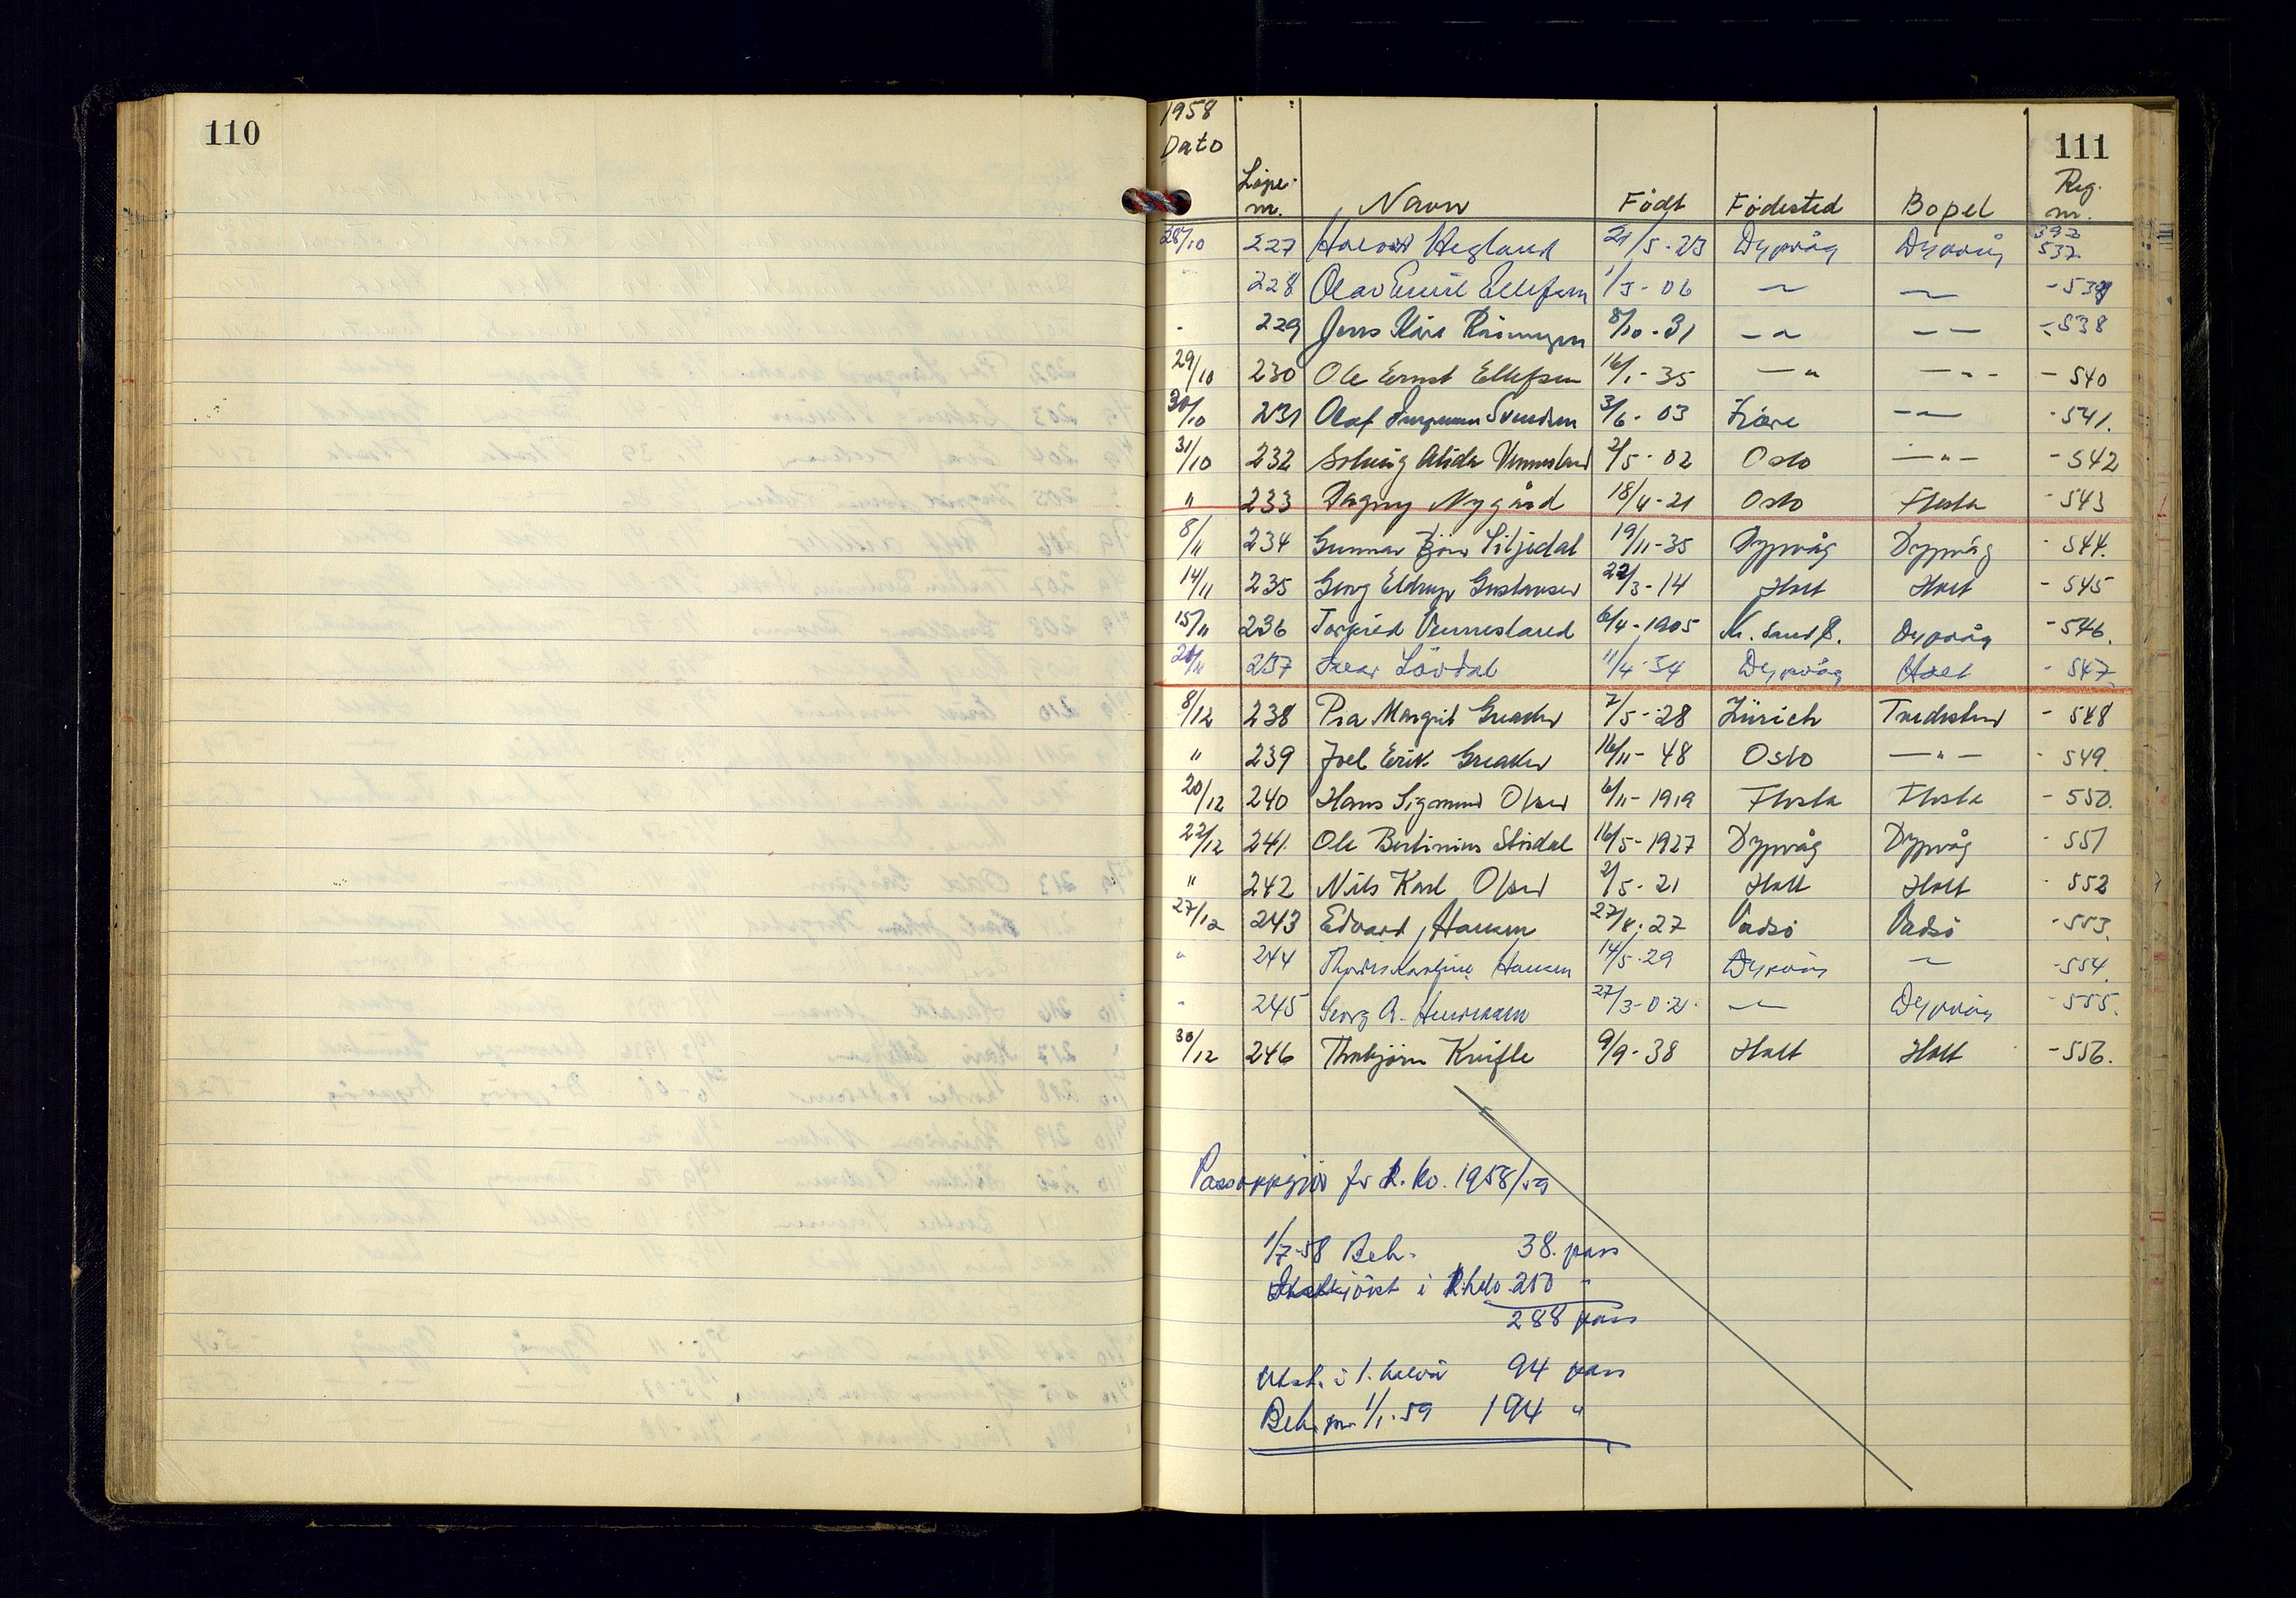 110
1958
Dato
111
Løpe-
nr. Navn Født Fødested Bopel Reg. nr.
28/10 227 Halvor Hegland 21/5-23 Dypvåg Dypvåg 392 537
" 228 Olav Emil Ellefsen 1/5-06 — — - 539
- 229 Jens Kåre Rasmussen 8/10-31 — — - 538
29/10 230 Ole Ernst Ellefsen 16/1-35 —"— —"— - 540
30/10 231 Olaf Svendsen 3/6-03 — - 541.
31/10 232 Solveig Alida Vennesland 2/5-02 Oslo —"— - 542
" 233 Dagny Nygård 18/4-21 Oslo Flosta - 543
8/11 234 Gunnar Liljedal 19/11-35 Dypvåg Dypvåg - 544.
14/11 235 Georg Eldrup Gustavsen 22/3-14 Holt Holt - 545
15/11 236 Torfrid Vennesland 6/4-1905 Kr. Sand S. Dypvåg - 546.
21/11 237 Ivar Lövdal 11/4-34 Dypvåg Holt - 547
8/12 238 Pia Margrit Greaker 7/5-28 Zürich Tvedestrand - 548
" 239 Joel Erik Greaker 16/11-48 Oslo —"— - 549.
20/12 240 Hans Sigmund Olsen 6/11-1919 Flosta Flosta - 550.
22/12 241. Ole Bertinius Stirdal 16/5-1927 Dypvåg Dypvåg - 551
" 242 Nils Karl Olsen 2/5-21 Holt Holt - 552
27/12 243 Edvard Hansen 27/8-27 Vadsö Vadsö - 553.
" 244 Hansen 14/5-29 Dypvåg — - 554.
- 245 Georg A. 27/3-02 — Dypvåg - 555.
30/12 246 Thorbjörn Knifle 9/9-38 Holt Holt - 556.
Passoppgjör for 1958/59
1/7-58 Beh. 38. pass
i 250 "
288 pass
Utst. i 1. halvår 94 pass
Beh. pr. 1/1-59 194 "